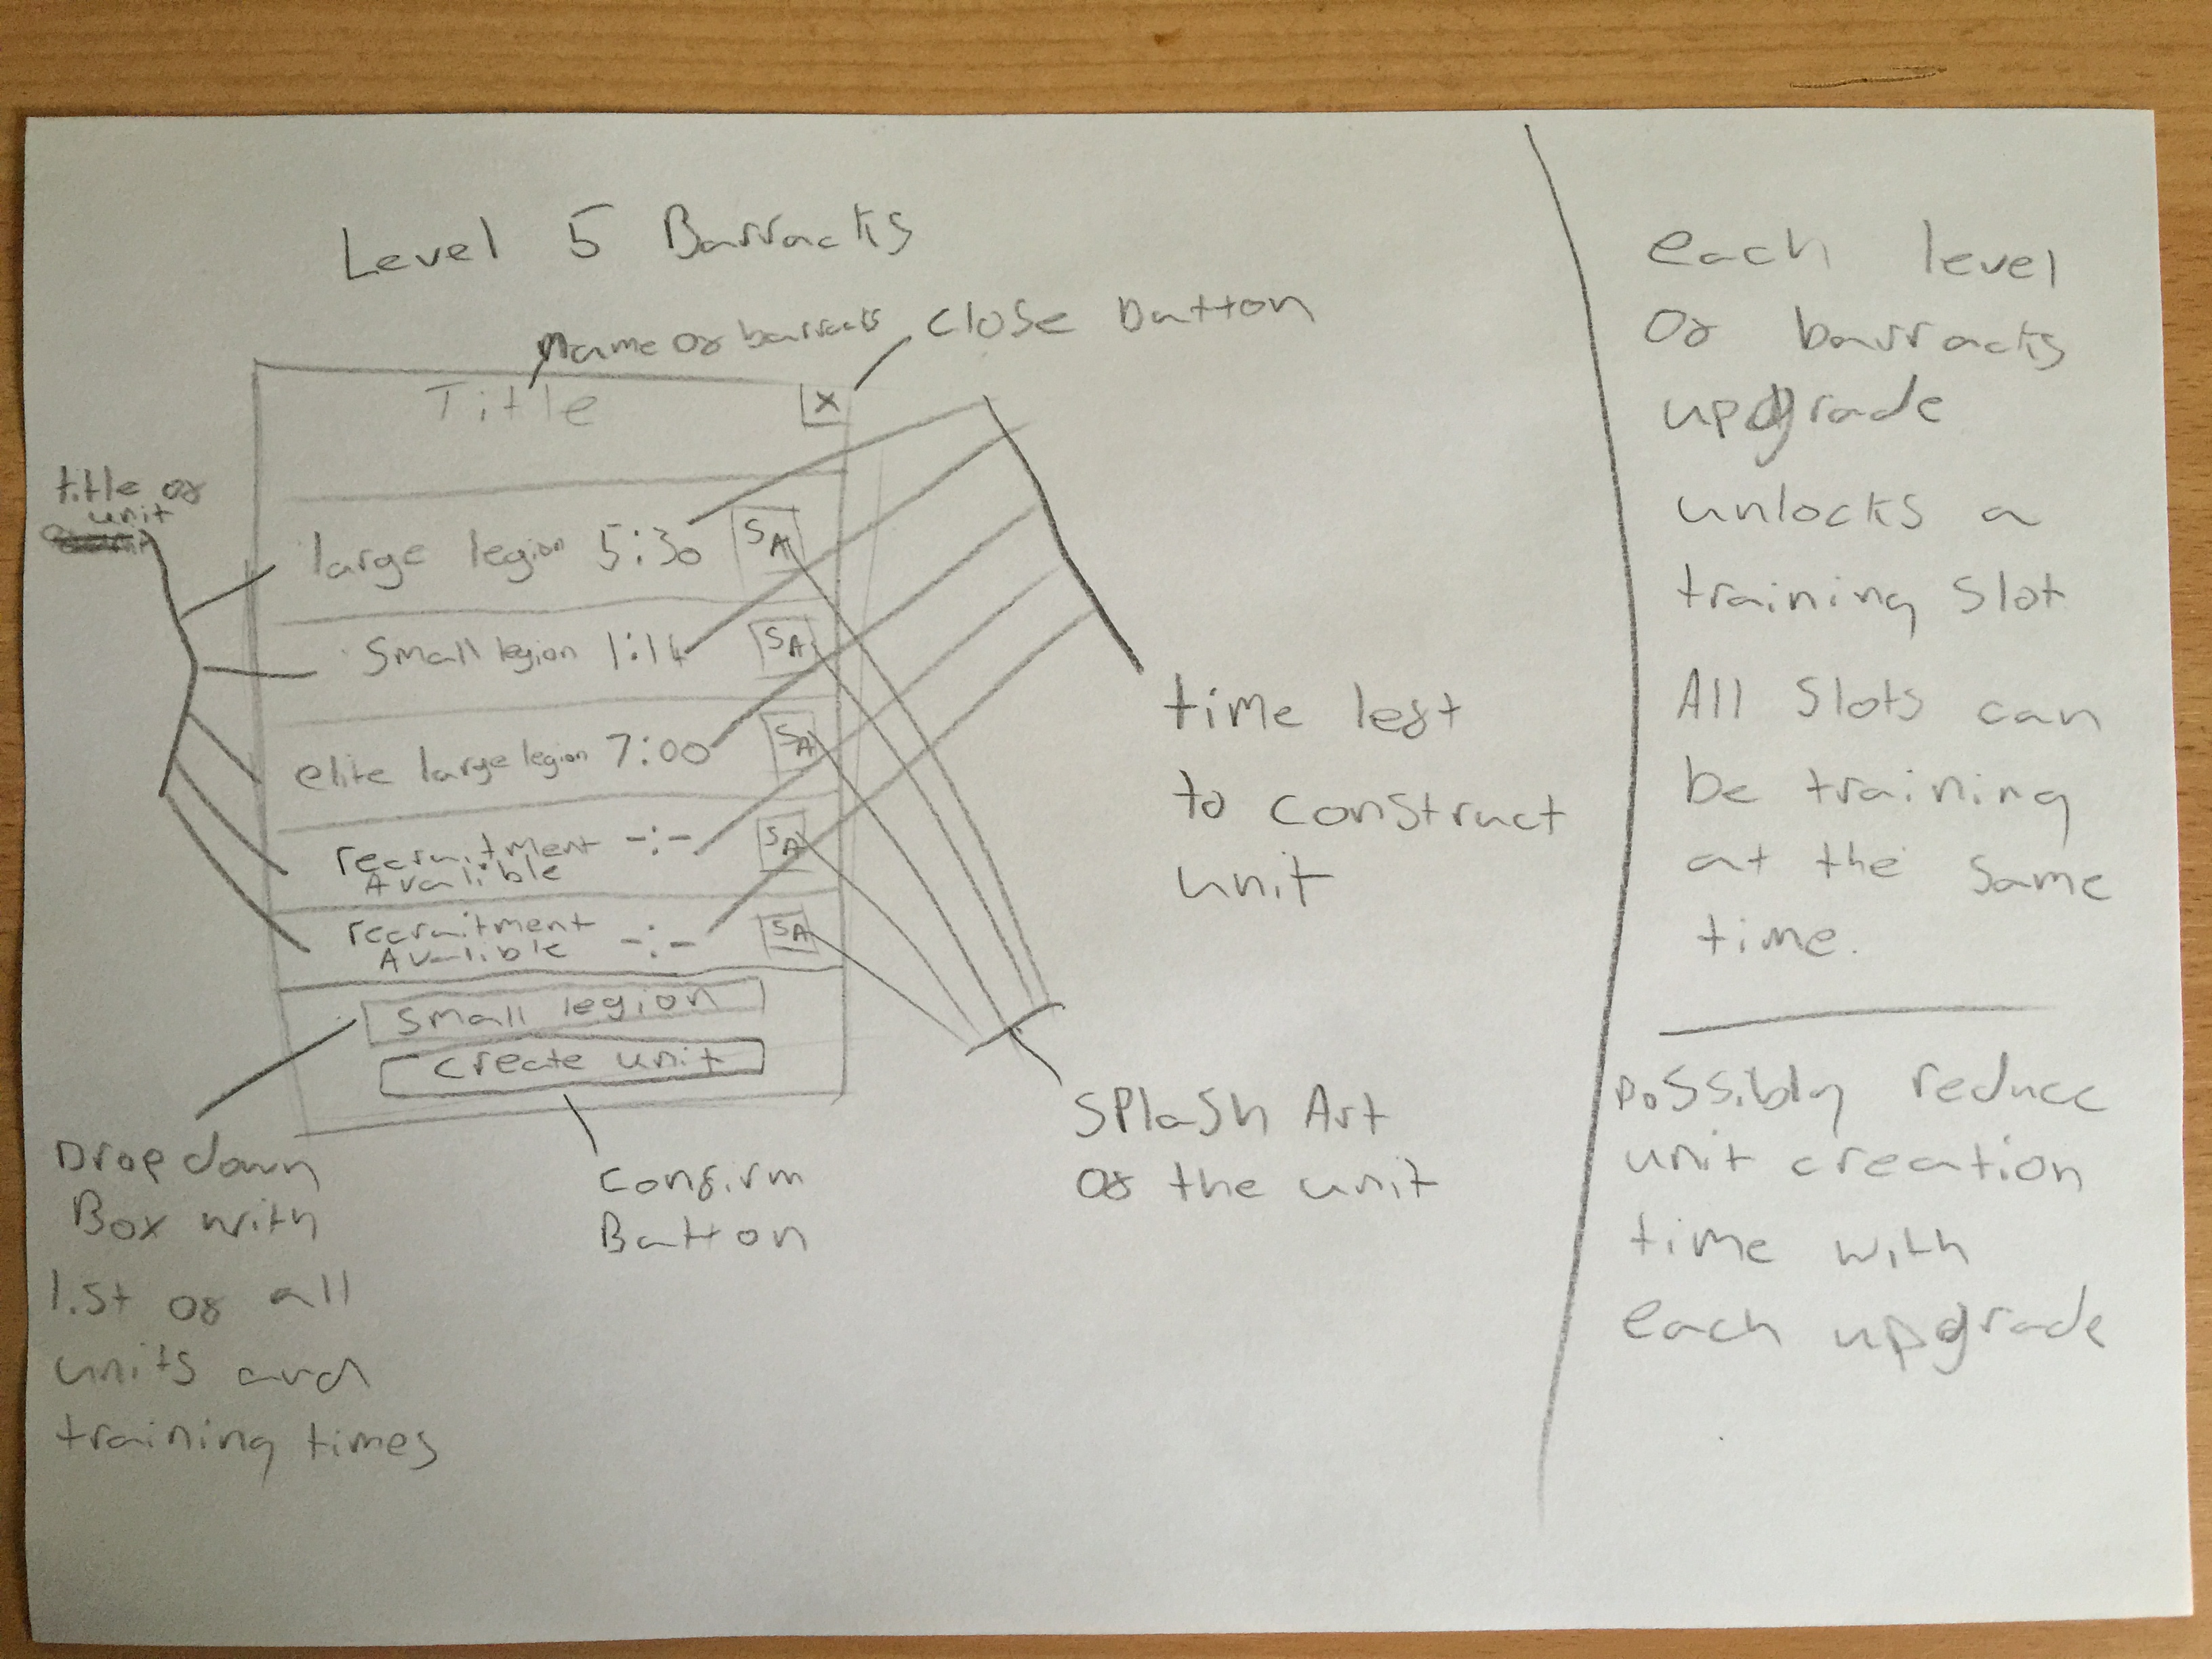 Level 5 Barracks
name of barracks
close button
Title
X
title of
unit
large legion 5:30 SA
small legion 1:14 SA
elite large legion 7:00 SA
recruitment -:- SA
Availible
recruitment -:- SA
Availible
small legion
create unit
time left
to construct
unit
Splash Art
of the unit
Confirm
Button
Drop down
Box with
list of all
units and
training times
each level
of barracks
upgrade
unlocks a
training slot
All slots can
be training
at the same
time.
possibly reduce
unit creation
time with
each upgrade